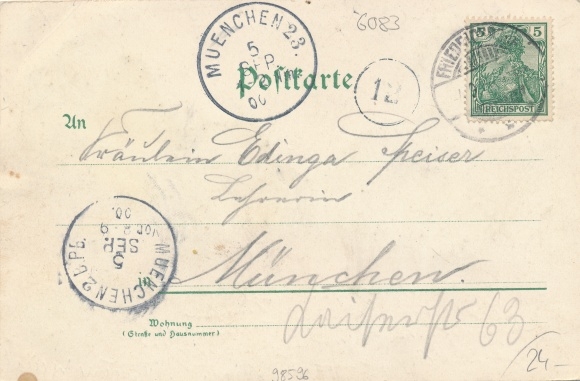 6083
MUENCHEN 23.
5
SEP.
00
Postkarte
12
5 5
REICHSPOST
An
Fräulein Edinga Speiser
Lehrerin
MUENCHEN 2 B.P.E.
5
SEP.
VOR 8-9
00.
in München.
Wohnung
(Straße und Hausnummer)
63
24-
98596